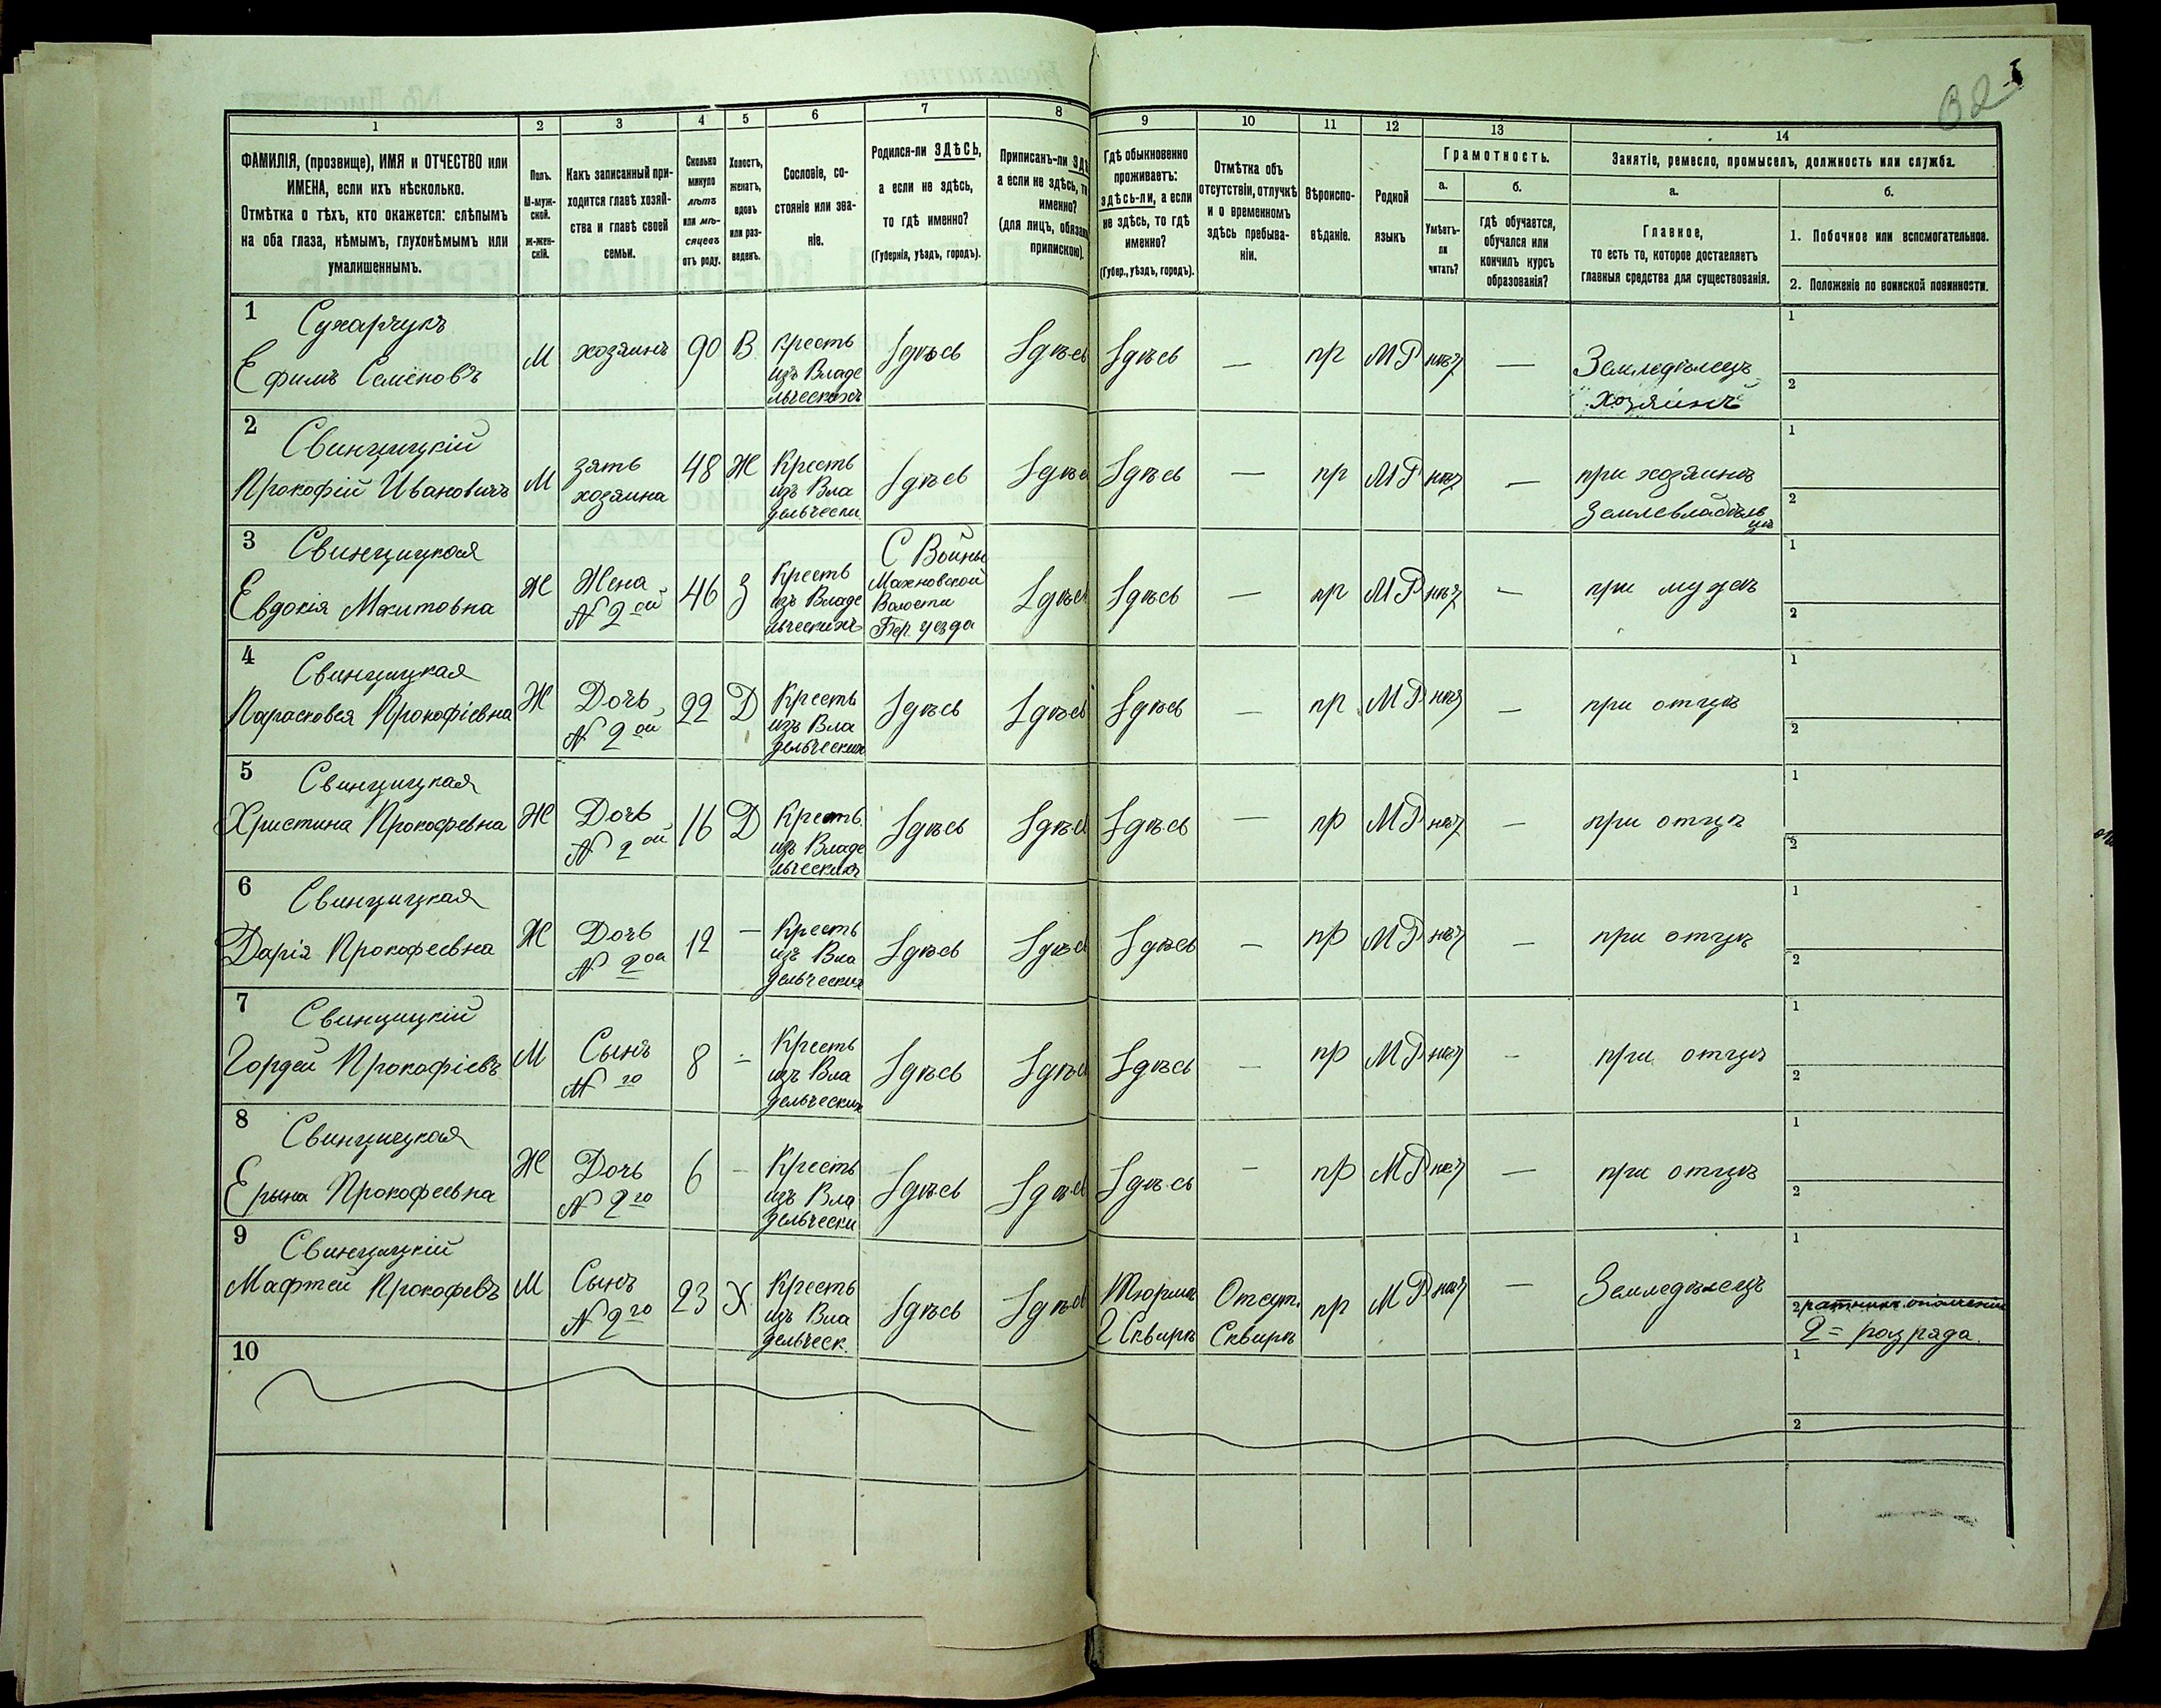 32
1 2 3 4 5 6 7 8 9 10 11 12 13 14
ФАМИЛІЯ, (прозвище), ИМЯ и ОТЧЕСТВО или
ИМЕНА, если ихъ нѣсколько.
Отмѣтка о тѣхъ, кто окажется: слѣпымъ
на оба глаза, нѣмымъ, глухонѣмымъ или
умалишеннымъ.
Полъ.
М-муж-
ской.
Ж-жен-
скій.
Какъ записанный при-
ходится главѣ хозяй-
ства и главѣ своей
семьи.
Сколько
минуло
лѣтъ
или мѣ-
сяцевъ
отъ роду.
Холостъ,
женатъ,
вдовъ
или раз-
веденъ.
Сословіе, со-
стояніе или зва-
ніе.
Родился-ли ЗДѢСЬ,
а если не здѣсь,
то гдѣ именно?
(Губернія, уѣздъ, городъ).
Приписанъ-ли
а если не здѣсь,
именно?
(для лицъ,
припискою).
Гдѣ обыкновенно
проживаетъ:
здѣсь-ли, а если
не здѣсь, то гдѣ
именно?
(Губер., уѣздъ, городъ).
Отмѣтка объ
отсутствіи, отлучкѣ
и о временномъ
здѣсь пребыва-
ніи.
Вѣроиспо-
вѣданіе.
Родной
языкъ
Грамотность.
а.
Умѣетъ-
ли
читать?
б.
гдѣ обучается,
обучался или
кончилъ курсъ
образованія?
Занятіе, ремесло, промыселъ, должность или служба.
а.
Главное,
то есть то, которое доставляетъ
главныя средства для существованія.
б.
1. Побочное или вспомогательное.
2. Положеніе по воинской повинности.
1
Сухарчукъ
Ефимъ Семеновъ
М
хозяинъ
90
В
Кресть
изъ Владе
льческихъ
Здѣсь
Здѣсь
Здѣсь
—
пр
МР
нѣт
—
Земледѣлецъ
хозяинъ
1
2
2
Свинцицкій
Прокофій Ивановичъ
М
зять
хозяина
48
Ж
Кресть
изъ Вла
дельчески
Здѣсь
Здѣс
Здѣсь
—
пр
МР
нѣт
—
при хозяинѣ
Землевладѣль
цѣ
1
2
3
Свинцицкая
Евдокія Микитовна
Ж
Жена
N 2ой
46
З
Кресть
изъ Владе
льческихъ
С Войны
Махновской
Волости
Бер уезда
Здѣсь
Здѣсь
—
пр
МР
нѣт
—
при мужѣ
1
2
4
Свинцицкая
Парасковея Прокофіевна
Ж
Дочь
N 2ой
22
Д
Кресть
изъ Вла
дельческих
Здѣсь
Здѣсь
Здѣсь
—
пр
МР
нѣт
—
при отцѣ
1
2
5
Свинцицкая
Христина Прокофевна
Ж
Дочь
N 2ой
16
Д
Кресть
изъ Владе
льческихъ
Здѣсь
Здѣсь
Здѣсь
—
пр
МР
нѣт
—
при отцѣ
1
2
6
Свинцицкая
Дарія Прокофеевна
Ж
Дочь
N 2ой
12
—
Кресть
изъ Вла
дельческих
Здѣсь
Здѣсь
Здѣсь
—
пр
МР
нѣт
—
при отцѣ
1
2
7
Свинцицкій
Гордей Прокофіевъ
М
Сынъ
N го
8
–
Кресть
изъ Вла
дельческих
Здѣсь
Здѣсь
Здѣсь
—
пр
МР
нѣт
–
при отцѣ
1
2
8
Свинцицкая
Ерына Прокофеевна
Ж
Дочь
N 2го
6
–
Кресть
изъ Вла
дельчески
Здѣсь
Здѣсь
Здѣсь
—
пр
МР
нѣт
—
при отцѣ
1
2
9
Свинцицкій
Мафтей Прокофевъ
М
Сынъ
N 2го
23
Х
Кресть
изъ Вла
дельческ.
Здѣсь
Здѣсь
Тюрмѣ
Г Сквирѣ
Отсут.
Сквирѣ
пр
МР
нѣт
—
Земледѣлецъ
1
2 ратникъ ополченія
2= разряда.
10
1
2